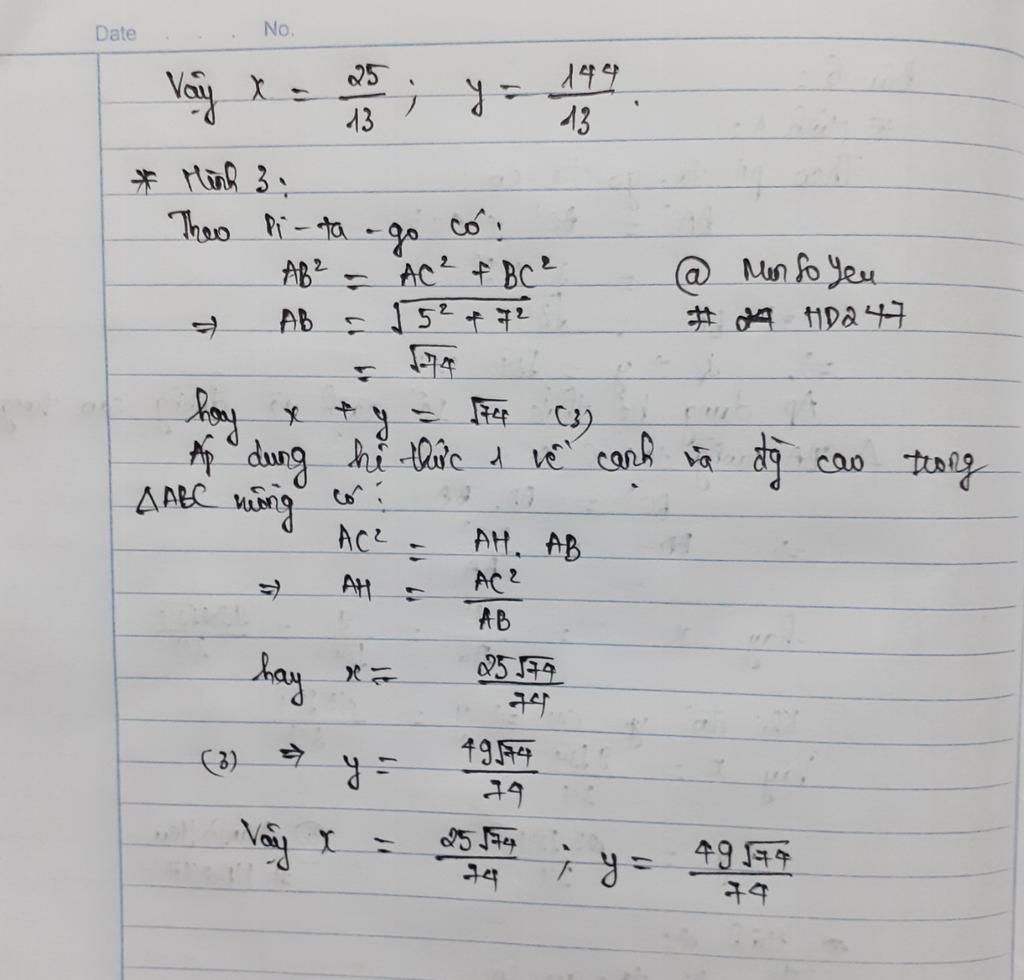 Date . . . No.
Vậy x = 25/13 ; y = 144/13.
* Hình 3:
Theo Pi-ta-go có:
AB² = AC² + BC² @ MinSoYeu
⇒ AB = √(5² + 7²) # HD247
= √74
hay x + y = √74 (3)
Áp dung hệ thức 1 về cạnh và đg cao trong
△ABC vuông có:
AC² = AH. AB
⇒ AH = AC²/AB
hay x = 25√74/74
(3) ⇒ y = 49√74/74
Vậy x = 25√74/74 ; y = 49√74/74